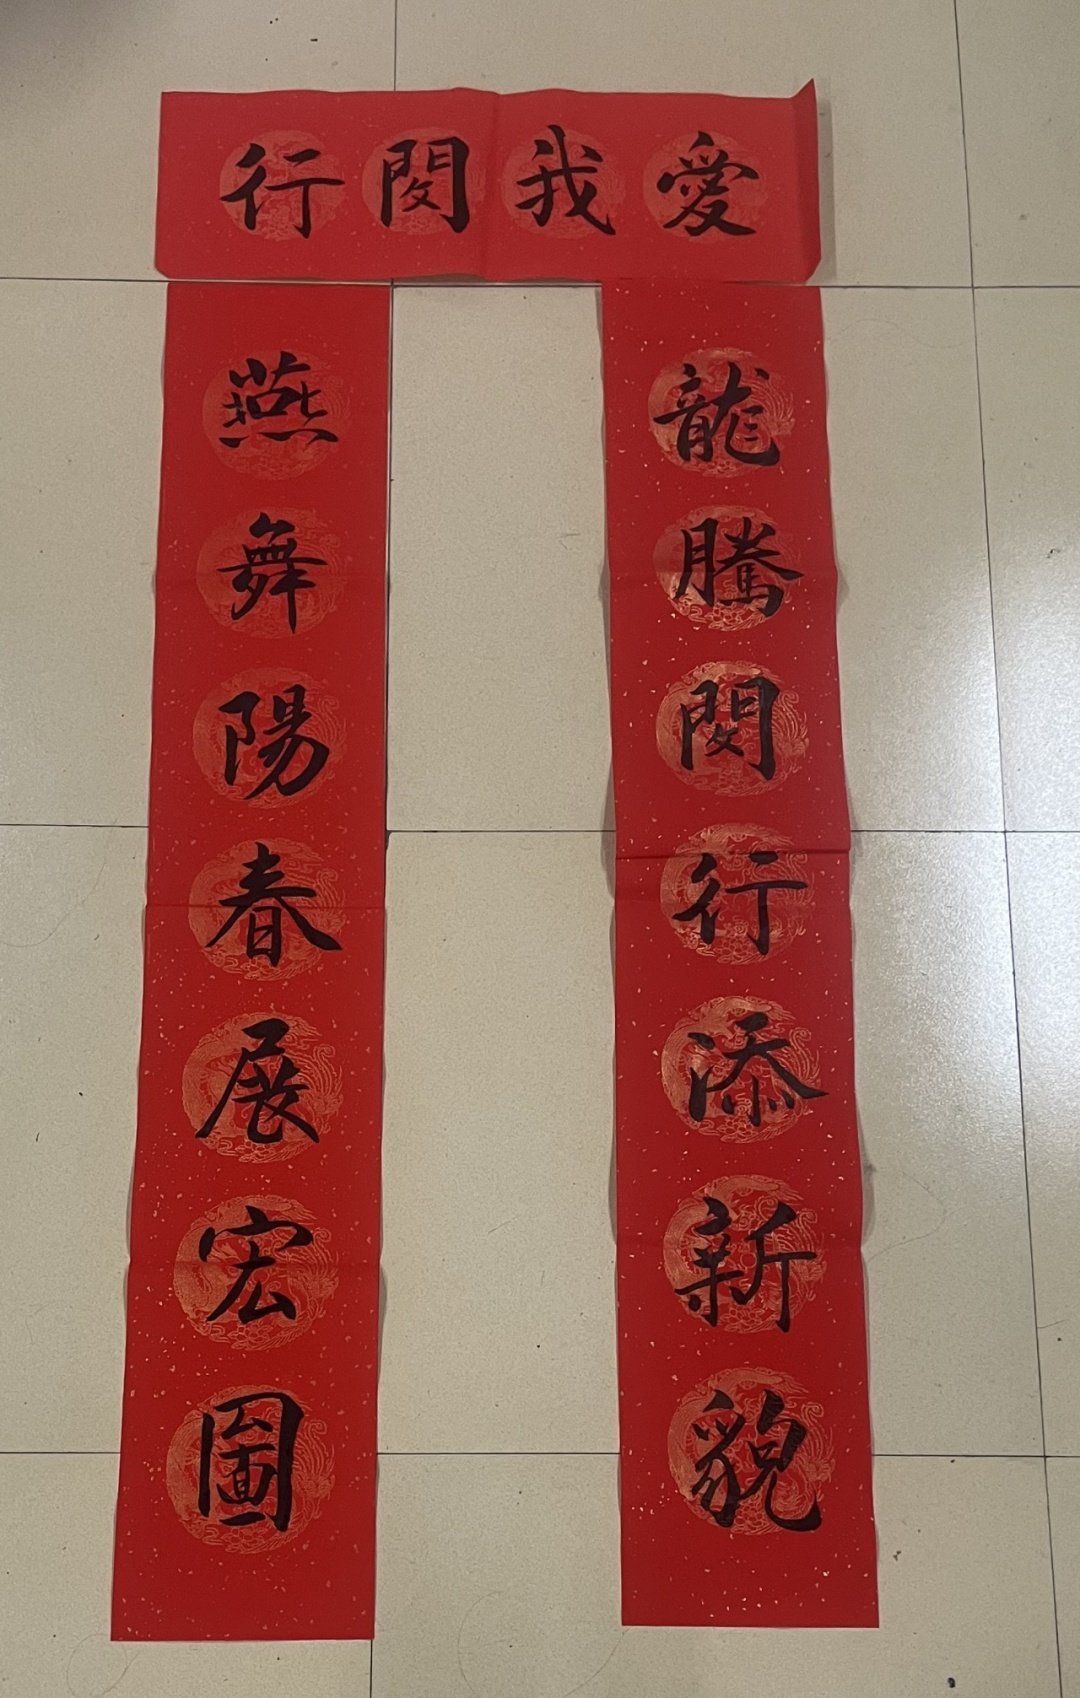 愛我閔行
龍騰閔行添新貌
燕舞陽春展宏圖